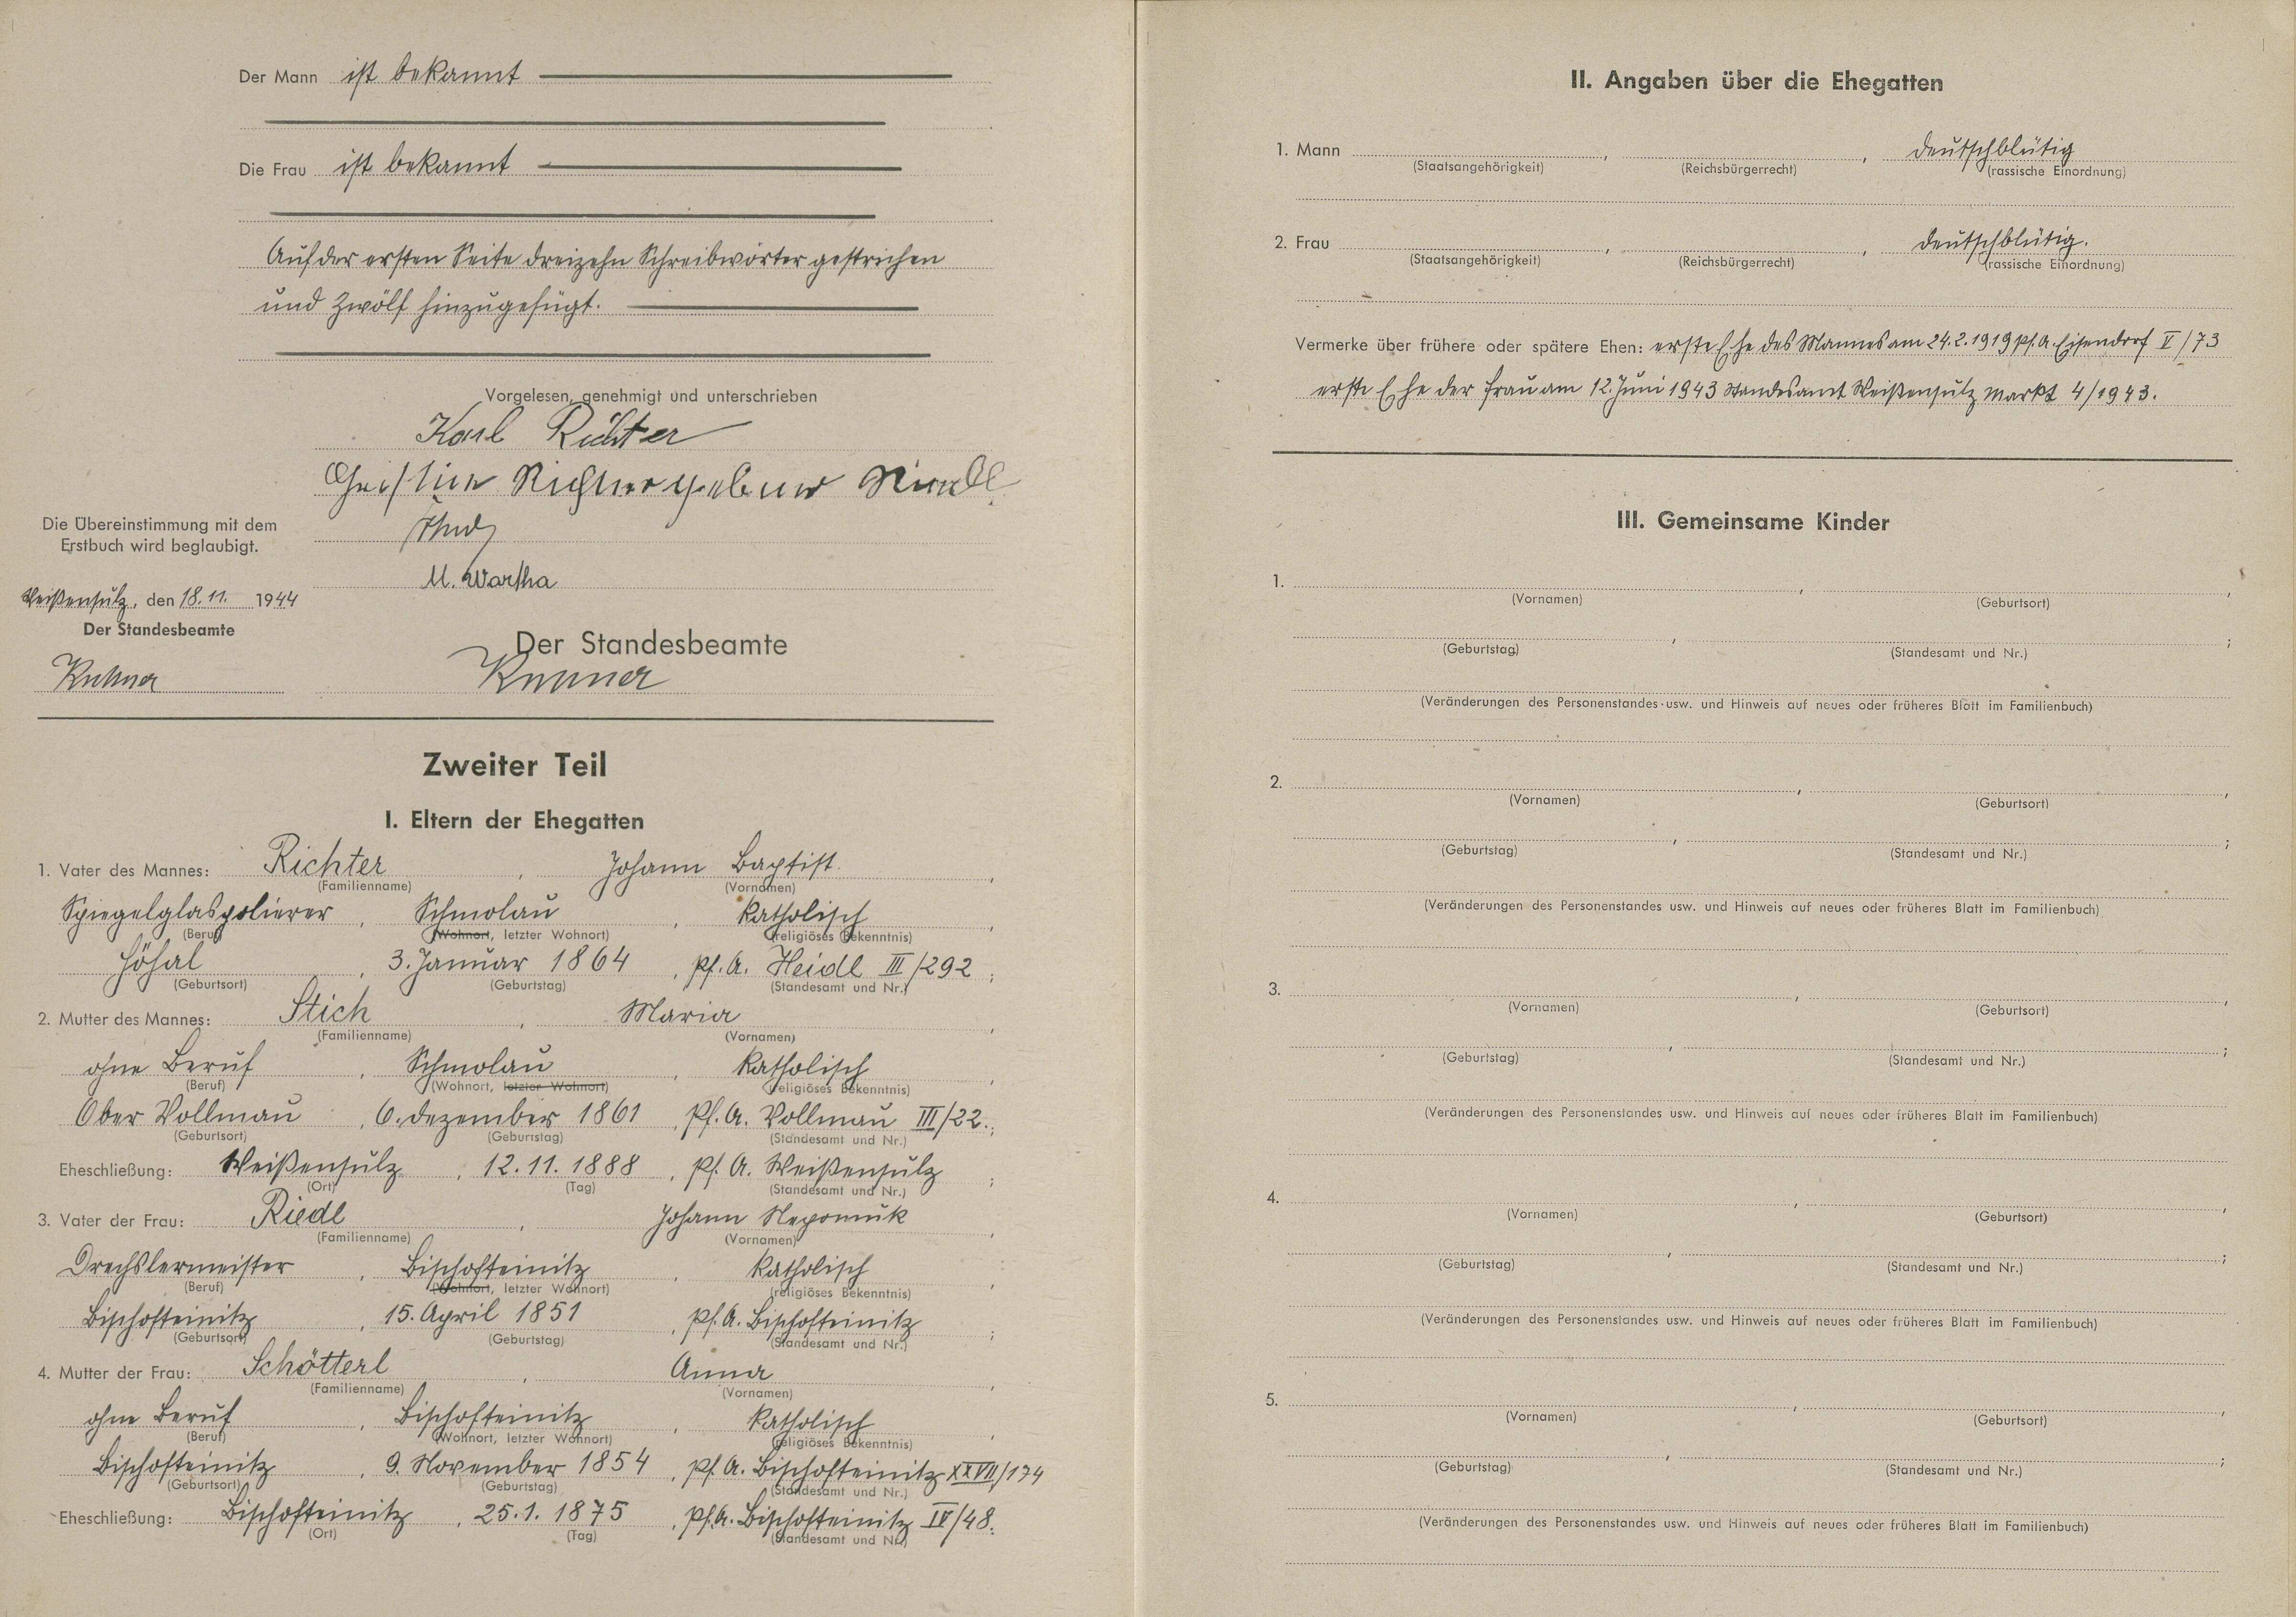 Der Mann ist bekannt
Die Frau ist bekannt
Auf der ersten Seite dreizehn Schreibwörter gestrichen
und zwölf hinzugefügt.
Vorgelesen, genehmigt und unterschrieben
Karl Richter
Christine Richter geborene Riedl
M. Wartha
Die Übereinstimmung mit dem
Erstbuch wird beglaubigt.
Weißensulz, den 18.11. 1944
Der Standesbeamte
Der Standesbeamte
Zweiter Teil
I. Eltern der Ehegatten
1. Vater des Mannes: Richter, Johann Baptist,
(Familienname) (Vornamen)
Spiegelglaspolierer, Schmolau, katholisch,
(Beruf) (Wohnort, letzter Wohnort) (religiöses Bekenntnis)
Höhal, 3. Januar 1864, Pf. A. Heidl III/292;
(Geburtsort) (Geburtstag) (Standesamt und Nr.)
2. Mutter des Mannes: Stich, Maria,
(Familienname) (Vornamen)
ohne Beruf, Schmolau, katholisch,
(Beruf) (Wohnort, letzter Wohnort) (religiöses Bekenntnis)
Ober Vollmau, 6. Dezember 1861, Pf. A. Vollmau III/22.;
(Geburtsort) (Geburtstag) (Standesamt und Nr.)
Eheschließung: Weißensulz, 12.11.1888, Pf. A. Weißensulz;
(Ort) (Tag) (Standesamt und Nr.)
3. Vater der Frau: Riedl, Johann Nepomuk,
(Familienname) (Vornamen)
Drechslermeister, Bischofteinitz, katholisch,
(Beruf) (Wohnort, letzter Wohnort) (religiöses Bekenntnis)
Bischofteinitz, 15. April 1851, Pf. A. Bischofteinitz;
(Geburtsort) (Geburtstag) (Standesamt und Nr.)
4. Mutter der Frau: Schötterl, Anna,
(Familienname) (Vornamen)
ohne Beruf, Bischofteinitz, katholisch,
(Beruf) (Wohnort, letzter Wohnort) (religiöses Bekenntnis)
Bischofteinitz, 9. November 1854, Pf. A. Bischofteinitz XXVII/174
(Geburtsort) (Geburtstag) (Standesamt und Nr.)
Eheschließung: Bischofteinitz, 25.1.1875, Pf. A. Bischofteinitz IV/48.
(Ort) (Tag) (Standesamt und Nr.)
II. Angaben über die Ehegatten
1. Mann , , deutschblütig
(Staatsangehörigkeit) (Reichsbürgerrecht) (rassische Einordnung)
2. Frau , , deutschblütig.
(Staatsangehörigkeit) (Reichsbürgerrecht) (rassische Einordnung)
Vermerke über frühere oder spätere Ehen: erste Ehe des Mannes am 24.2.1919 Pf. A. Eisendorf V/73
erste Ehe der Frau am 12. Juni 1943 Standesamt Weißensulz Markt 4/1943.
III. Gemeinsame Kinder
1. , ,
(Vornamen) (Geburtsort)
, ;
(Geburtstag) (Standesamt und Nr.)
(Veränderungen des Personenstandes usw. und Hinweis auf neues oder früheres Blatt im Familienbuch)
2. , ,
(Vornamen) (Geburtsort)
, ;
(Geburtstag) (Standesamt und Nr.)
(Veränderungen des Personenstandes usw. und Hinweis auf neues oder früheres Blatt im Familienbuch)
3. , ,
(Vornamen) (Geburtsort)
, ;
(Geburtstag) (Standesamt und Nr.)
(Veränderungen des Personenstandes usw. und Hinweis auf neues oder früheres Blatt im Familienbuch)
4. , ,
(Vornamen) (Geburtsort)
, ;
(Geburtstag) (Standesamt und Nr.)
(Veränderungen des Personenstandes usw. und Hinweis auf neues oder früheres Blatt im Familienbuch)
5. , ,
(Vornamen) (Geburtsort)
, ;
(Geburtstag) (Standesamt und Nr.)
(Veränderungen des Personenstandes usw. und Hinweis auf neues oder früheres Blatt im Familienbuch)